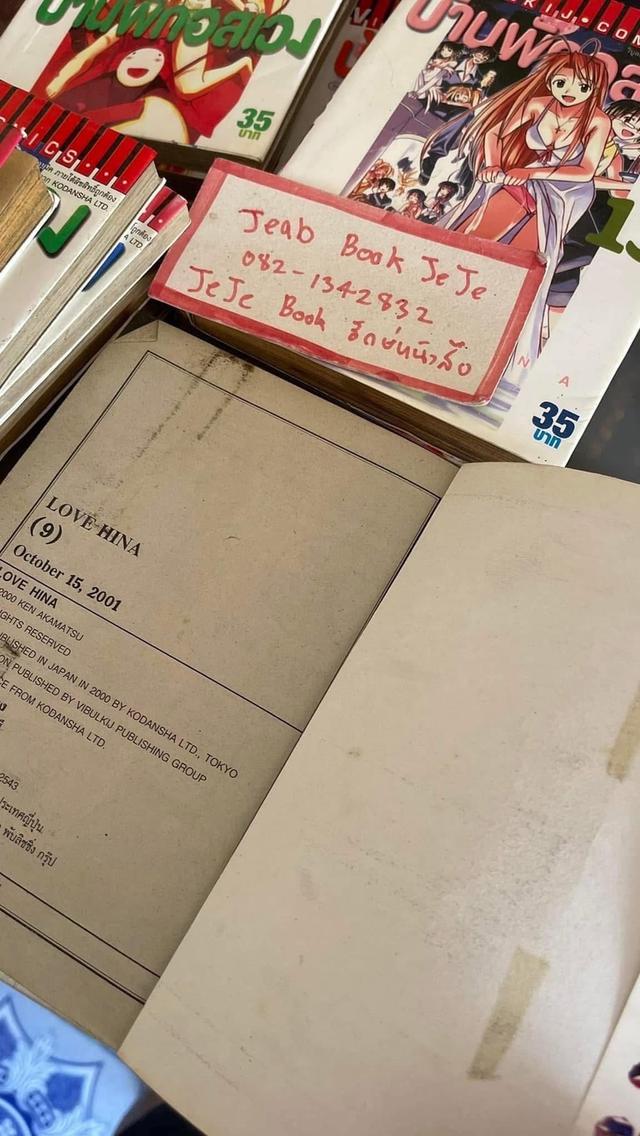 บ้านพักอลเวง
35
บาท
KIJ.COM
บ้านพักอล
13
ICS...
KODANSHA LTD.
Jeab Book JeJe
082-1342832
JeJe Book
N A
35
บาท
LOVE HINA
(9)
October 15, 2001
LOVE HINA
2000 KEN AKAMATSU
GHTS RESERVED
BLISHED IN JAPAN IN 2000 BY KODANSHA LTD., TOKYO
ON PUBLISHED BY VIBULKIJ PUBLISHING GROUP
CE FROM KODANSHA LTD.
2543
ประเทศญี่ปุ่น
พับลิชชิ่ง กรุ๊ป